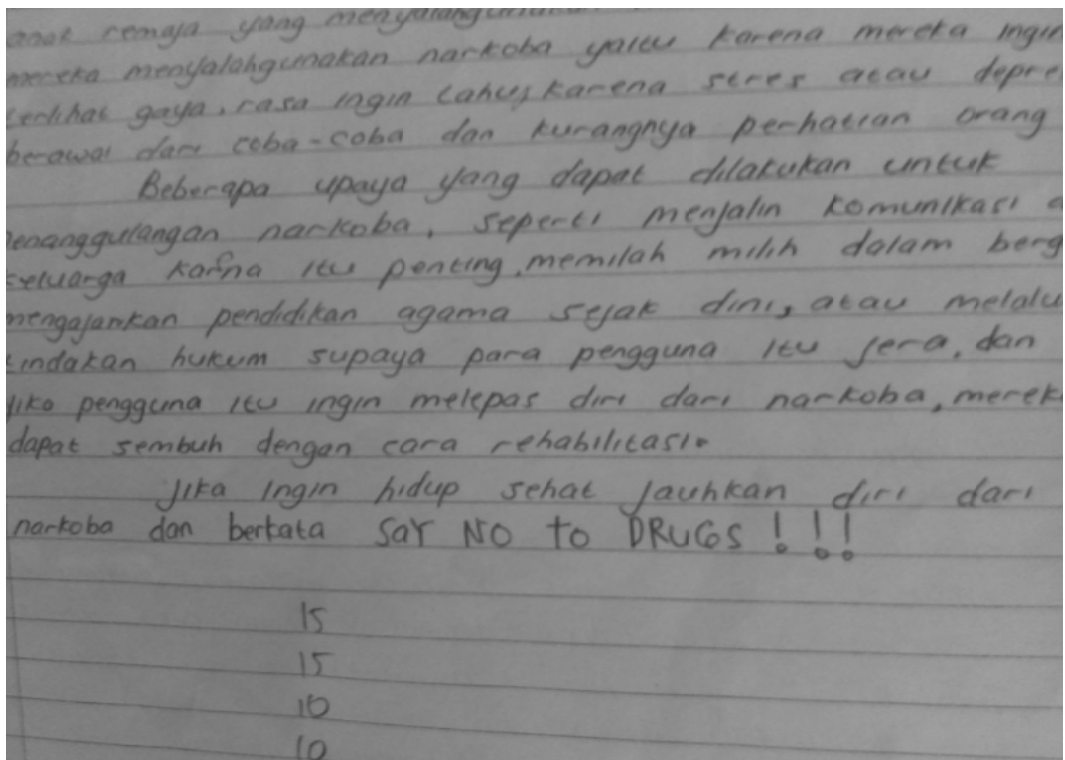 anak remaja yang menyalahgunakan
mereka menyalahgunakan narkoba yaitu karena mereka ingin
terlihat gaya, rasa ingin tahu, karena stres atau depre
berawal dari coba-coba dan kurangnya perhatian orang
Beberapa upaya yang dapat dilakukan untuk
penanggulangan narkoba, seperti menjalin komunikasi d
keluarga karna itu penting, memilah milih dalam berg
mengajarkan pendidikan agama sejak dini, atau melalu
tindakan hukum supaya para pengguna itu jera, dan
jika pengguna itu ingin melepas diri dari narkoba, merek
dapat sembuh dengan cara rehabilitasi.
Jika ingin hidup sehat jauhkan diri dari
narkoba dan berkata SAY NO to DRUGS !!!
15
15
10
10